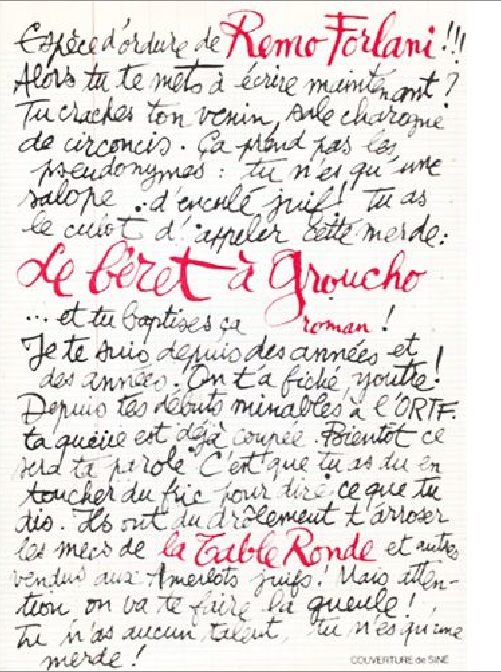 Espèce d'ordure de Remo Forlani !!!
Alors tu te mets à écrire maintenant ?
Tu craches ton venin, sale charogne
de circoncis. Ça prend pas les
pseudonymes : tu n'es qu'une
salope .. d'enculé juif ! Tu as
le culot d'appeler cette merde :
Le béret à Groucho
... et tu baptises ça roman !
Je te suis depuis des années et
des années. On t'a fiché, youtre !
Depuis tes débuts minables à l'ORTF.
ta queue est déjà coupée. Bientôt ce
sera ta parole. C'est que tu as du en
toucher du fric pour dire ce que tu
dis. Ils ont du drôlement t'arroser
les mecs de la Table Ronde et autres
vendus aux Amerlots juifs ! Mais atten-
tion on va te faire la gueule !
Tu n'as aucun talent, tu n'es qu'une
merde !
COUVERTURE de SINÉ